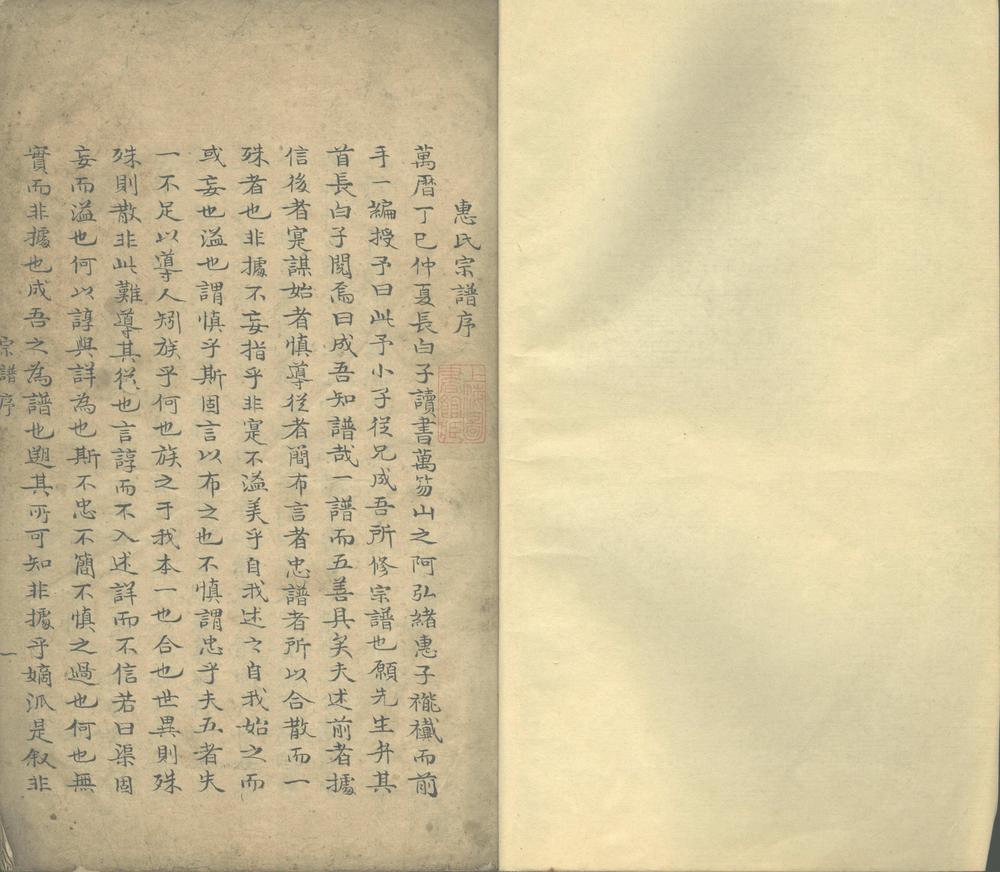 惠氏宗譜序
萬曆丁巳仲夏長白子讀書萬笏山之阿弘緒惠子襱襳而前
手一編授予曰此予小子從兄成吾所修宗譜也願先生弁其
首長白子閱焉曰成吾知譜哉一譜而五善具矣夫述前者據
信後者寔謀始者慎導從者簡布言者忠譜者所以合散而一
殊者也非據不妄指乎非寔不溢美乎自我述之自我始之而
或妄也溢也謂慎乎斯固言以布之也不慎謂忠乎夫五者失
一不足以導人矧族乎何也族之于我本一也合也世異則殊
殊則散非此難導其從也言諄而不入述詳而不信若曰渠固
妄而溢也何以諄與詳為也斯不忠不簡不慎之過也何也無
實而非據也成吾之為譜也遡其所可知非據乎嫡派是叙非
宗譜序 一
上海圖書館藏